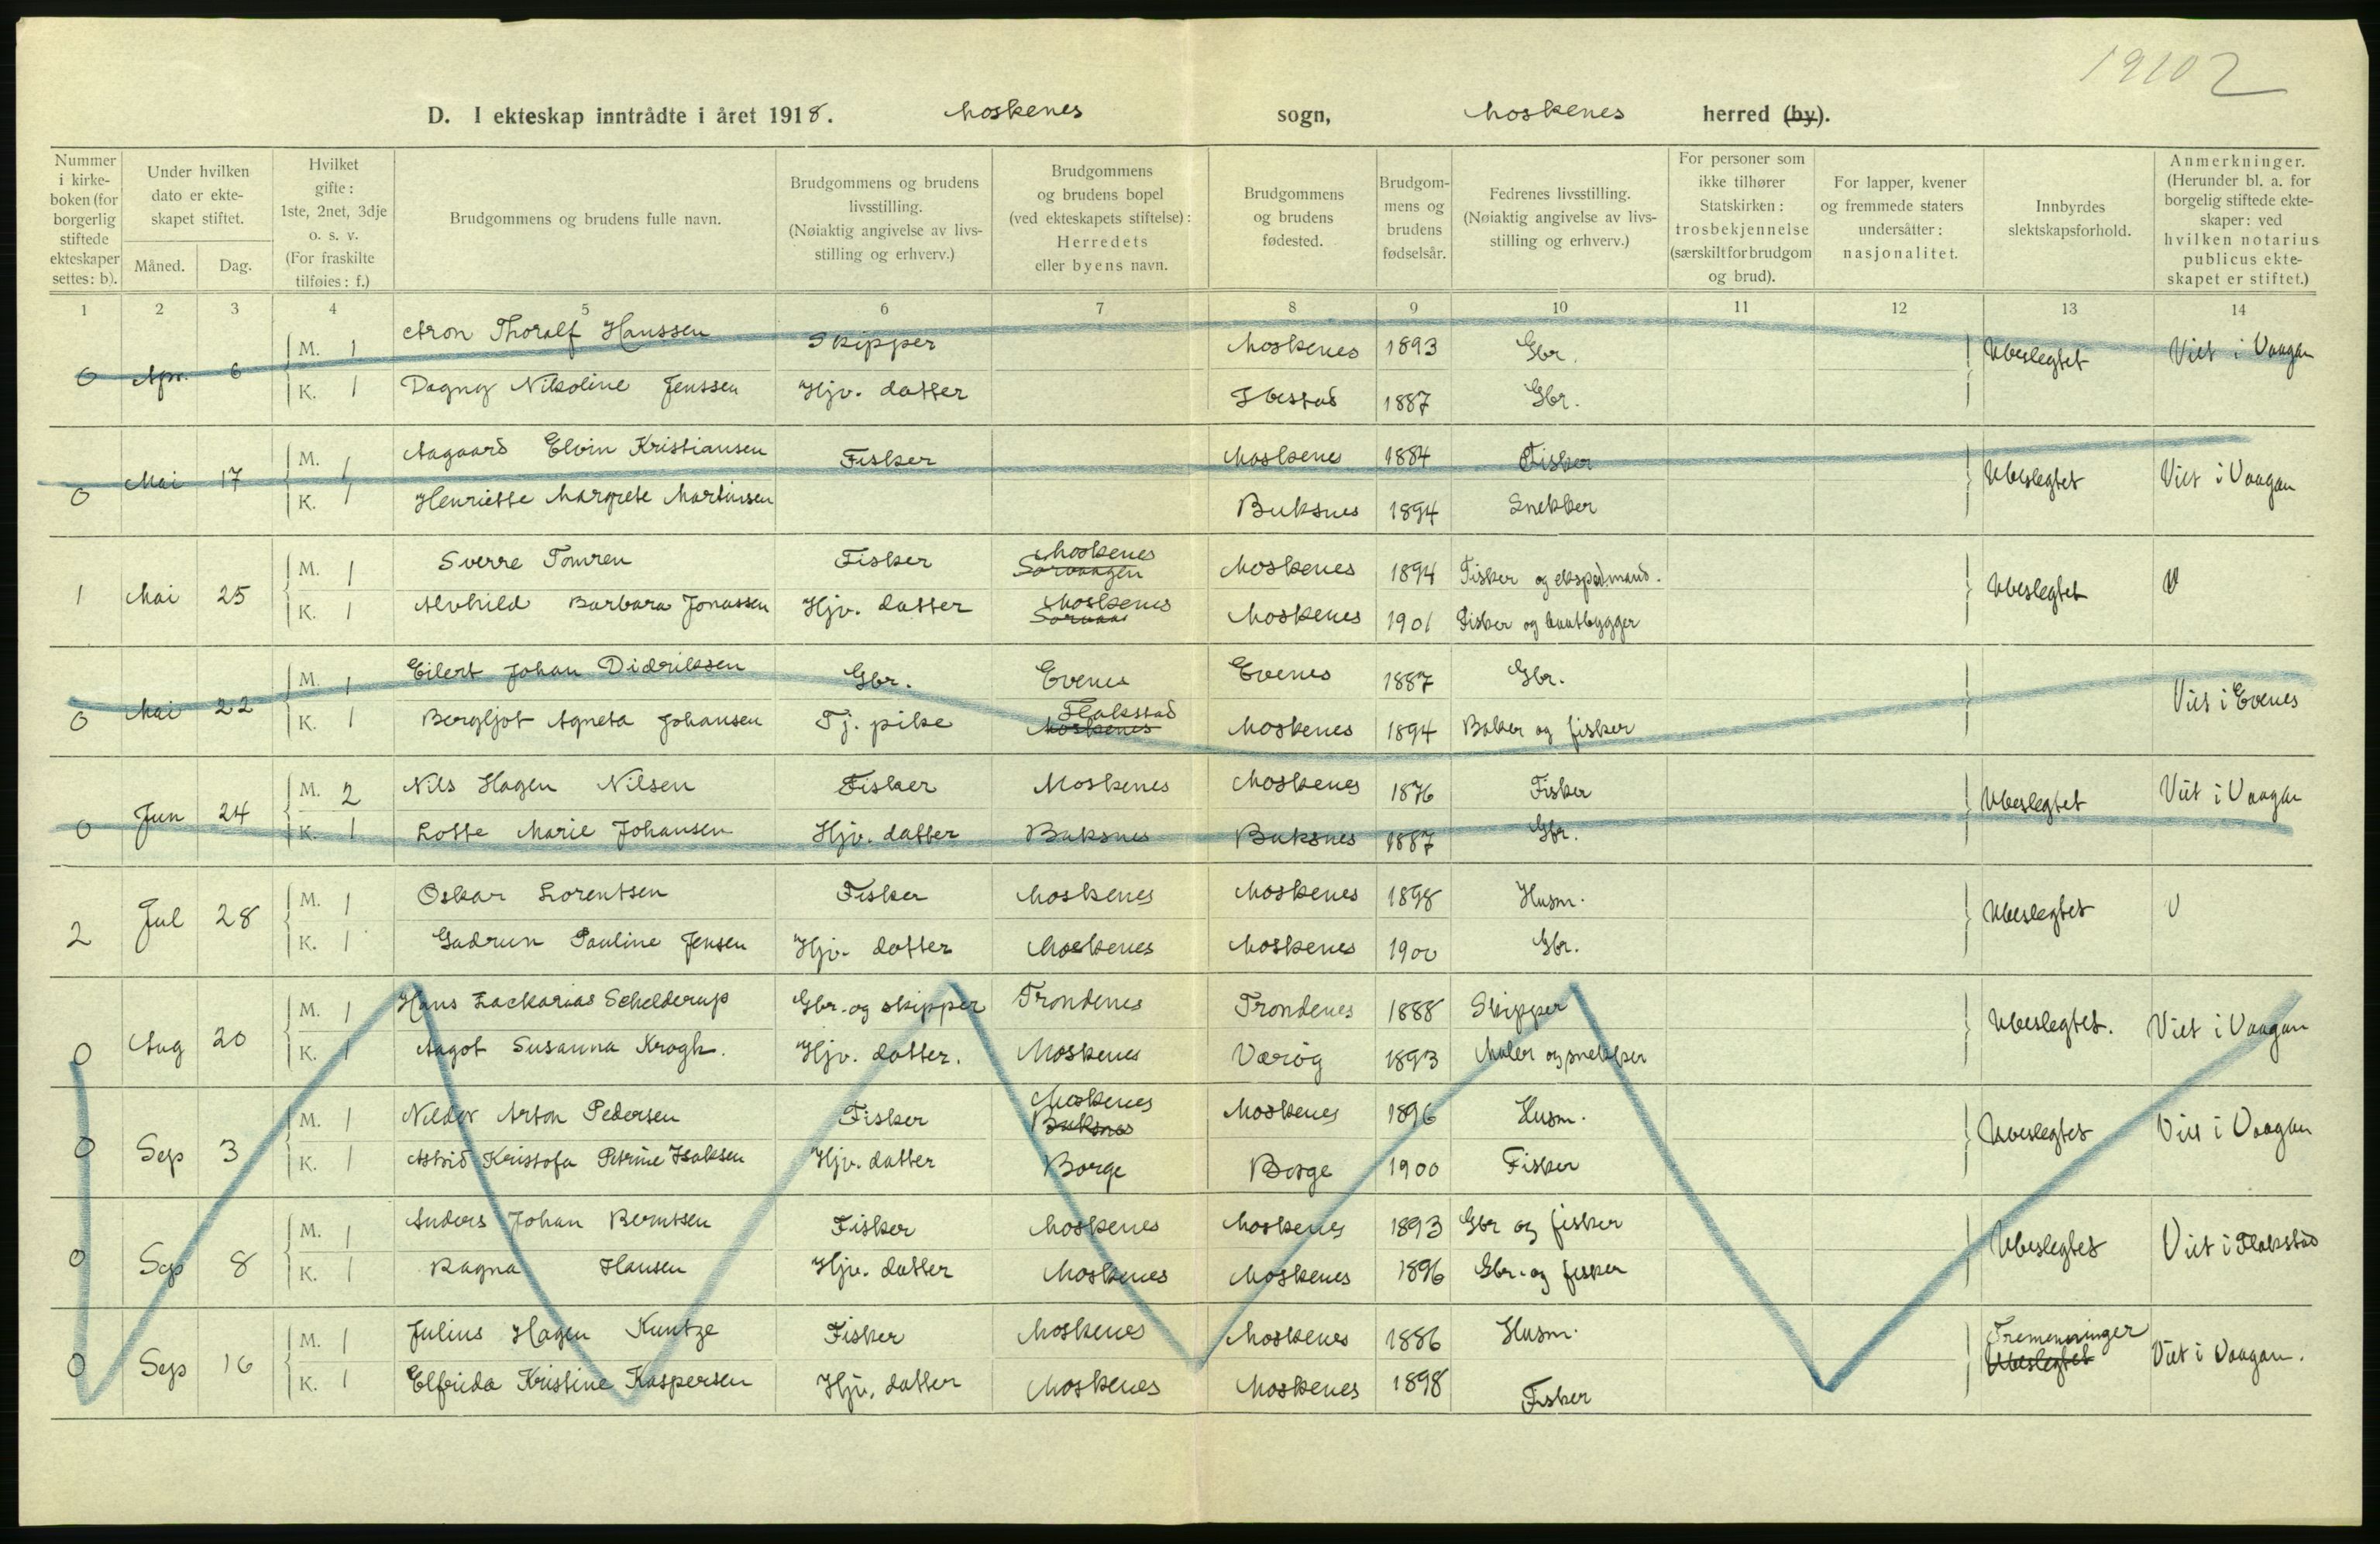 19102
D. I ekteskap inntrådte i året 1918. Moskenes sogn, Moskenes herred (by).
Nummer i kirke-boken (for borgerlig stiftede ekteskaper settes: b).
Under hvilken dato er ekte-skapet stiftet.
Måned. Dag.
Hvilket gifte: 1ste, 2net, 3dje o. s. v. (For fraskilte tilføies: f.)
Brudgommens og brudens fulle navn.
Brudgommens og brudens livsstilling. (Nøiaktig angivelse av livs-stilling og erhverv.)
Brudgommens og brudens bopel (ved ekteskapets stiftelse): Herredets eller byens navn.
Brudgommens og brudens fødested.
Brudgom-mens og brudens fødselsår.
Fedrenes livsstilling. (Nøiaktig angivelse av livs-stilling og erhverv.)
For personer som ikke tilhører Statskirken: trosbekjennelse (særskilt for brudgom og brud).
For lapper, kvener og fremmede staters undersåtter: nasjonalitet.
Innbyrdes slektskapsforhold.
Anmerkninger. (Herunder bl. a. for borgelig stiftede ekte-skaper: ved hvilken notarius publicus ekte-skapet er stiftet.)
1 2 3 4 5 6 7 8 9 10 11 12 13 14
0 Apr. 6 M. 1 Aron Thoralf Hanssen Skipper Moskenes 1893 Gbr. Ubeslegtet Viet i Vaagan
K. 1 Dagny Nikoline Jenssen Hjv. datter Ibestad 1887 Gbr.
0 Mai 17 M. 1 Aagaard Elvin Kristiansen Fisker Moskenes 1884 Fisker Ubeslegtet Viet i Vaagan
K. 1 Henriette Margrete Martinsen Buksnes 1894 Snekker
1 Mai 25 M. 1 Sverre Tomren Fisker Moskenes Sørvaagen Moskenes 1894 Fisker og eksped.mand. Ubeslegtet V
K. 1 Alvhild Barbara Jonassen Hjv. datter Moskenes Moskenes 1901 Fisker og baatbygger
0 Mai 22 M. 1 Eilert Johan Didriksen Gbr. Evenes Evenes 1887 Gbr. Viet i Evenes
K. 1 Bergljot Agneta Johansen Tj. pike Flakstad Moskenes Moskenes 1894 Baker og fisker
0 Jun 24 M. 2 Nils Hagen Nilsen Fisker Moskenes Moskenes 1876 Fisker Ubeslegtet Viet i Vaagan
K. 1 Lotte Marie Johansen Hjv. datter Buksnes Buksnes 1887 Gbr.
2 Jul 28 M. 1 Oskar Lorentsen Fisker Moskenes Moskenes 1898 Husm. Ubeslegtet V
K. 1 Gudrun Pauline Jensen Hjv. datter Moskenes Moskenes 1900 Gbr.
0 Aug 20 M. 1 Hans Zackarias Schelderup Gbr. og skipper Trondenes Trondenes 1888 Skipper Ubeslegtet. Viet i Vaagan
K. 1 Aagot Susanna Krogh. Hjv. datter. Moskenes Værøy 1893 Maler og snekker
0 Sep 3 M. 1 Nildor Arton Pedersen Fisker Moskenes Buksnes Moskenes 1896 Husm. Ubeslegtet Viet i Vaagan
K. 1 Astrid Kristofa Petrine Isaksen Hjv. datter Borge Borge 1900 Fisker
0 Sep 8 M. 1 Anders Johan Berntsen Fisker Moskenes Moskenes 1893 Gbr og fisker Ubeslegtet Viet i Flakstad
K. 1 Ragna Hansen Hjv. datter Moskenes Moskenes 1896 Gbr. og fisker
0 Sep 16 M. 1 Julius Hagen Kuntze Fisker Moskenes Moskenes 1886 Husm. Tremenninger Ubeslegtet Viet i Vaagan.
K. 1 Elfrida Kristine Kaspersen Hjv. datter Moskenes Moskenes 1898 Fisker